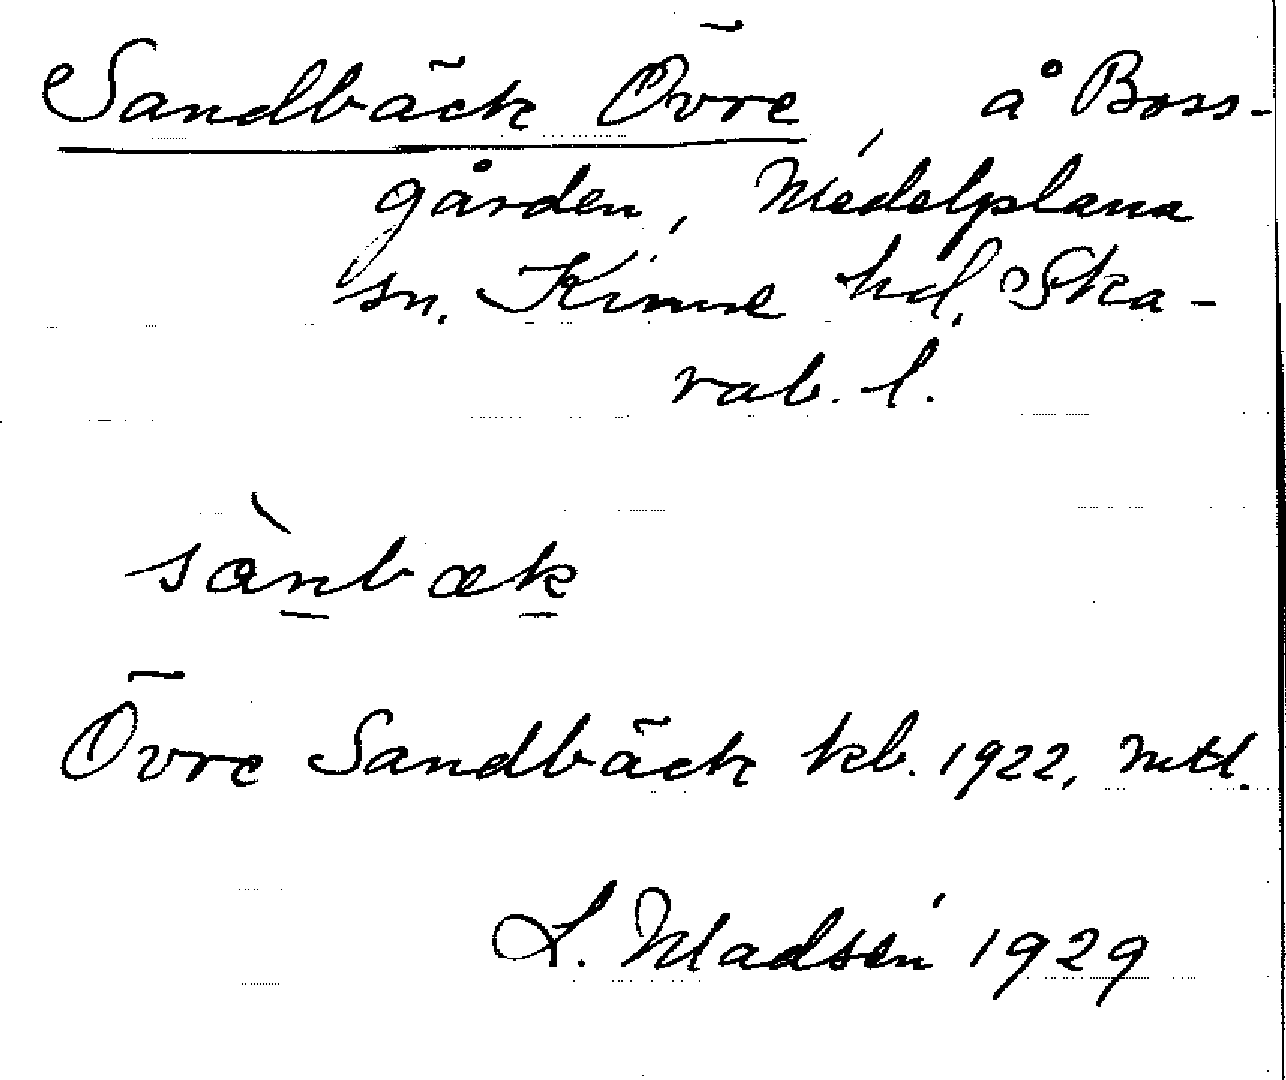 Sandbäck Övre, å Boss-
gården, Medelplana
sn. Kinne hd, Ska-
rab. l.
sànbæk
Övre Sandbäck kb. 1922, mtl.
L. Madsén 1929